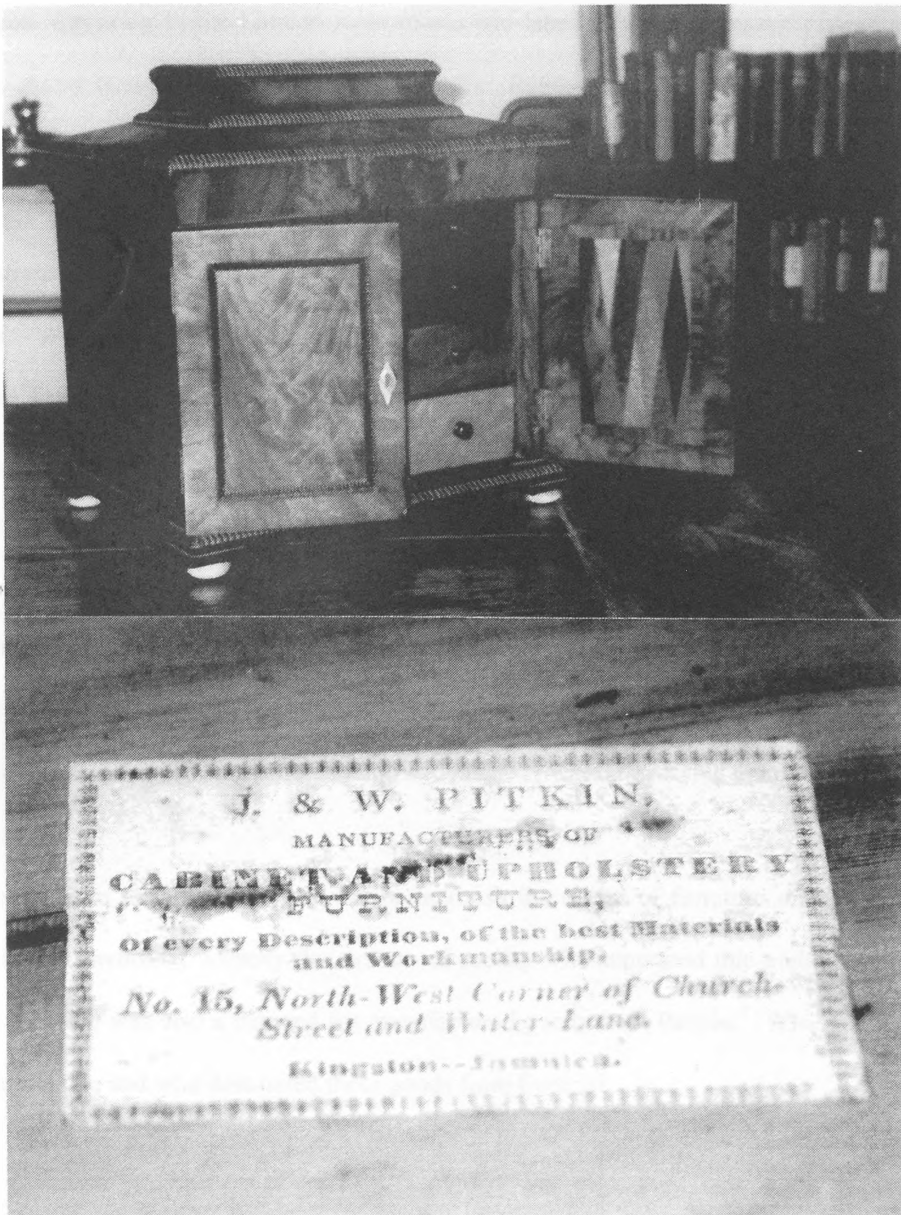 J. & W. PITKIN,
MANUFACTURERS OF
CABINET AND UPHOLSTERY
FURNITURE,
Of every Description, of the best Materials
and Workmanship,
No. 15, North-West Corner of Church-
Street and Water-Lane.
Kingston--Jamaica.